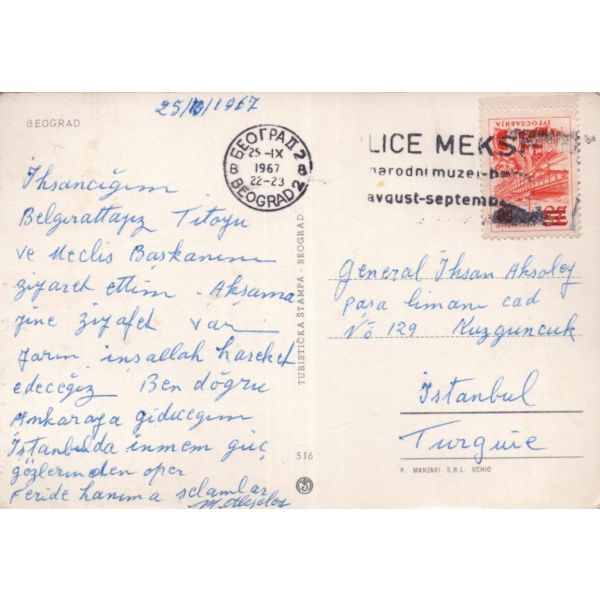 25/9/1967
BEOGRAD
БЕОГРАД 2
25-IX
1967
22-23
BEOGRAD 2
LICE MEKSI
narodni muzej-be
avgust-septemb
JУГОСЛАВИЈА
İhsancığım
Belgırattayız Titoyu
ve Meclis Başkanını
ziyaret ettim. Akşama
yine ziyafet var
yarın inşallah hareket
edeceğiz Ben doğru
Ankaraya gidiceğim
İstanbulda inmem güç
gözlerinden öper
Feride hanıma selamlar
TURISTIČKA ŠTAMPA - BEOGRAD
516
General İhsan Aksoley
Paşa limanı cad
No 129 Kuzguncuk
İstanbul
Turquie
P. MARZARI S.R.L. SCHIO